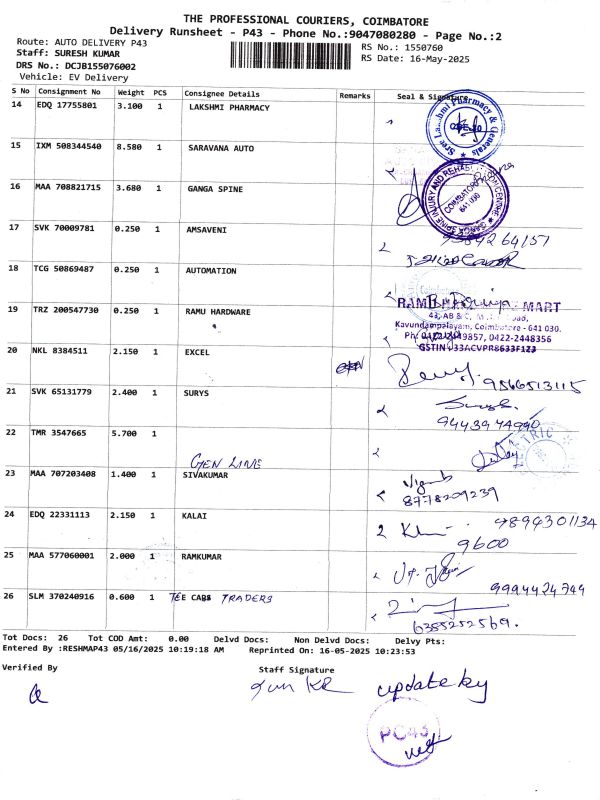 THE PROFESSIONAL COURIERS, COIMBATORE
Delivery Runsheet - P43 - Phone No.:9047080280 - Page No.:2
Route: AUTO DELIVERY P43
RS No.: 1550760
Staff: SURESH KUMAR
RS Date: 16-May-2025
DRS No.: DCJB155076002
Vehicle: EV Delivery
S No Consignment No Weight PCS Consignee Details Remarks Seal & Signature
14 EDQ 17755801 3.100 1 LAKSHMI PHARMACY
Sree Lakshmi Pharmacy & Generals
15 IXM 508344540 8.580 1 SARAVANA AUTO
16 MAA 708821715 3.680 1 GANGA SPINE
COIMBATORE 641 030
17 SVK 70009781 0.250 1 AMSAVENI
18 TCG 50869487 0.250 1 AUTOMATION
19 TRZ 200547730 0.250 1 RAMU HARDWARE
MART
Kavundampalayam, Coimbatore - 641 030.
0422-2448356
GSTIN : 33ACVPR8633F1Z3
20 NKL 8384511 2.150 1 EXCEL
9566513115
21 SVK 65131779 2.400 1 SURYS
22 TMR 3547665 5.700 1
GEN LINE
ELECTRIC
23 MAA 707203408 1.400 1 SIVAKUMAR
8778209239
24 EDQ 22331113 2.150 1 KALAI
9894301134
9600
25 MAA 577060001 2.000 1 RAMKUMAR
9994424749
26 SLM 370240916 0.600 1 TEE CABS TRADERS
6385252569.
Tot Docs: 26 Tot COD Amt: 0.00 Delvd Docs: Non Delvd Docs: Delvy Pts:
Entered By :RESHMAP43 05/16/2025 10:19:18 AM Reprinted On: 16-05-2025 10:23:53
Verified By
Staff Signature
update by
PC43